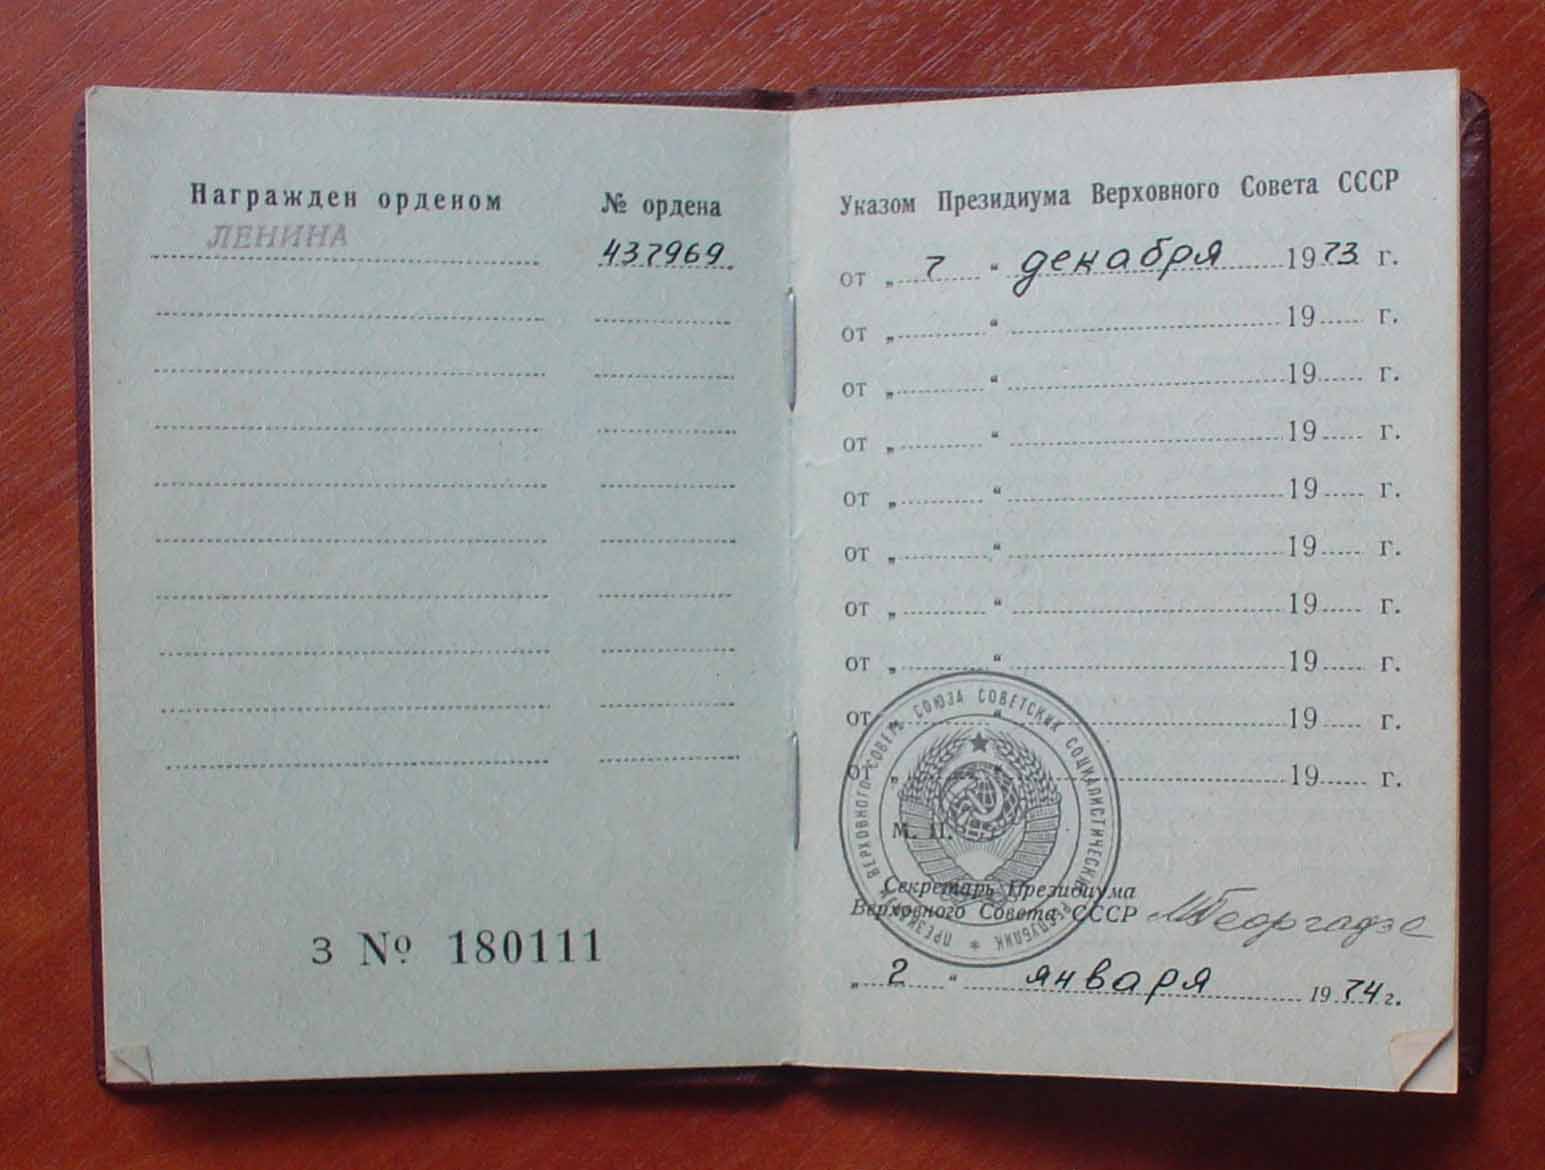 Награжден орденом
№ ордена
ЛЕНИНА
437969
З № 180111
Указом Президиума Верховного Совета СССР
от „ 7 “ декабря 1973 г.
от „ “ 19 г.
от „ “ 19 г.
от „ “ 19 г.
от „ “ 19 г.
от „ “ 19 г.
от „ “ 19 г.
от „ “ 19 г.
от „ “ 19 г.
от „ “ 19 г.
М. П.
ПРЕЗИДИУМ ВЕРХОВНОГО СОВЕТА СОЮЗА СОВЕТСКИХ СОЦИАЛИСТИЧЕСКИХ РЕСПУБЛИК *
Секретарь Президиума
Верховного Совета СССР МГеоргадзе
„ 2 “ января 1974 г.